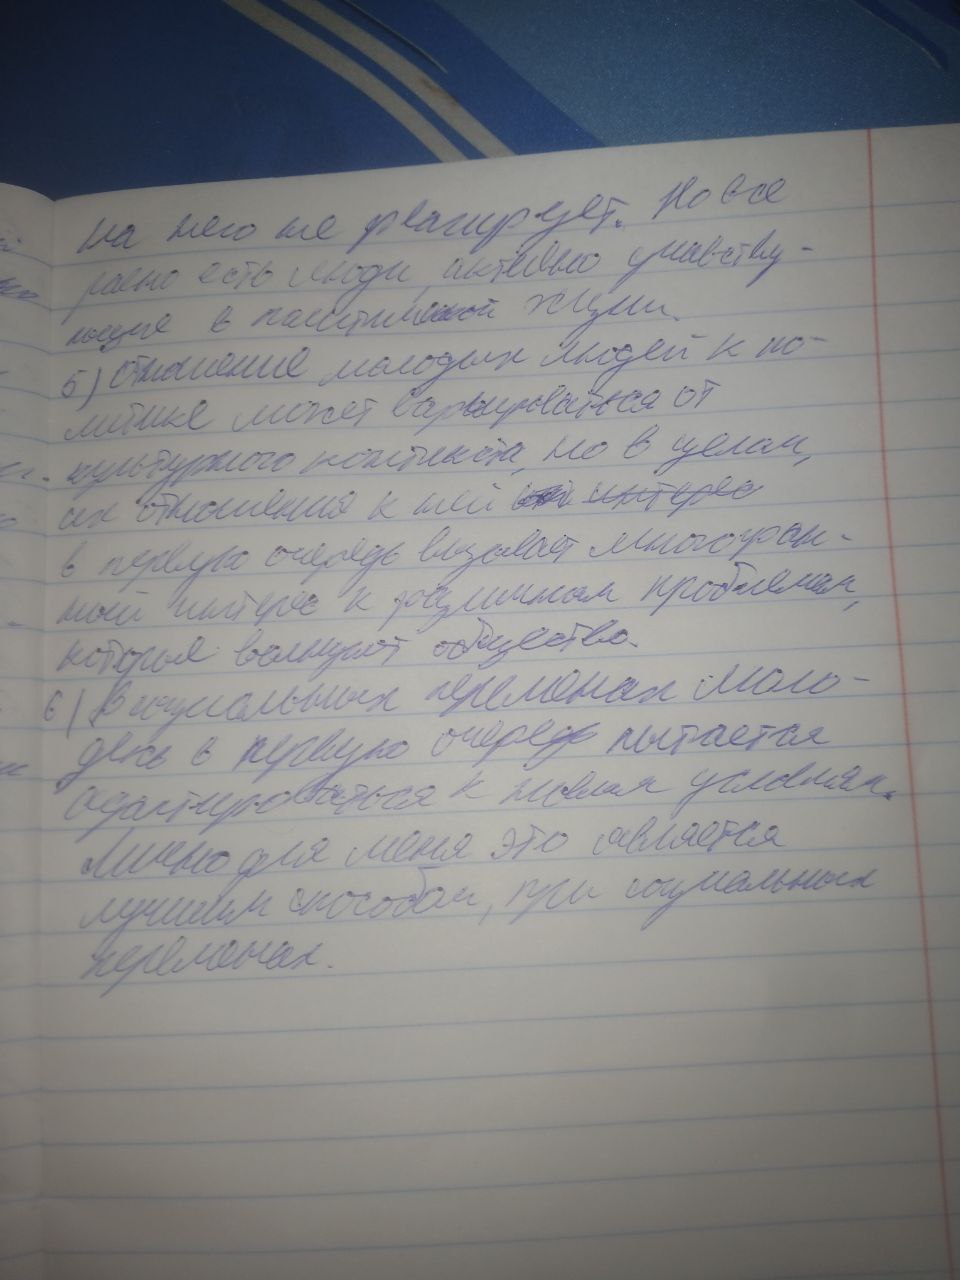 на него не реагирует. Но все
равно есть люди, активно учавству-
ющие в политической жизни.
5) Отношение молодых людей к по-
литике может варьироваться от
культурного контекста, но в целом,
их отношения к ней интерес
в первую очередь вызывает многогран-
ный интерес к различным проблемам,
которые волнуют общество.
6) В социальных переменах моло-
дежь в первую очередь пытается
адаптироваться к новым условиям.
Лично для меня это является
лучшим способом, при социальных
переменах.